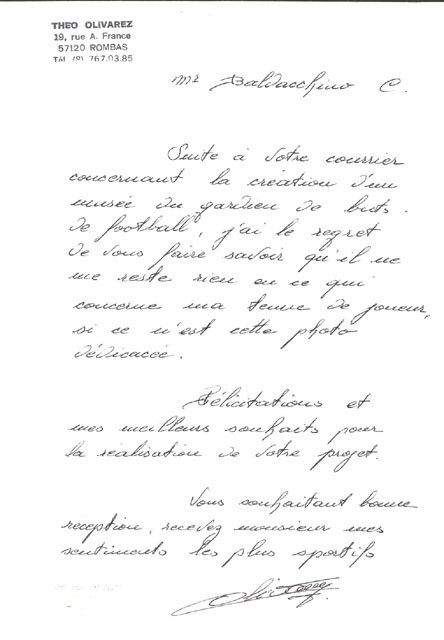 THEO OLIVAREZ
19, rue A. France
57120 ROMBAS
Tél. (8) 767.03.85
Mr Baldacchino C.
Suite à votre courrier
concernant la création d'un
musée du gardien de buts
de football, j'ai le regret
de vous faire savoir qu'il ne
me reste rien en ce qui
concerne ma tenue de joueur,
si ce n'est cette photo
dédicacée.
Félicitations et
mes meilleurs souhaits pour
la réalisation de votre projet.
Vous souhaitant bonne
reception, recevez monsieur mes
sentiments les plus sportifs
Olivarez